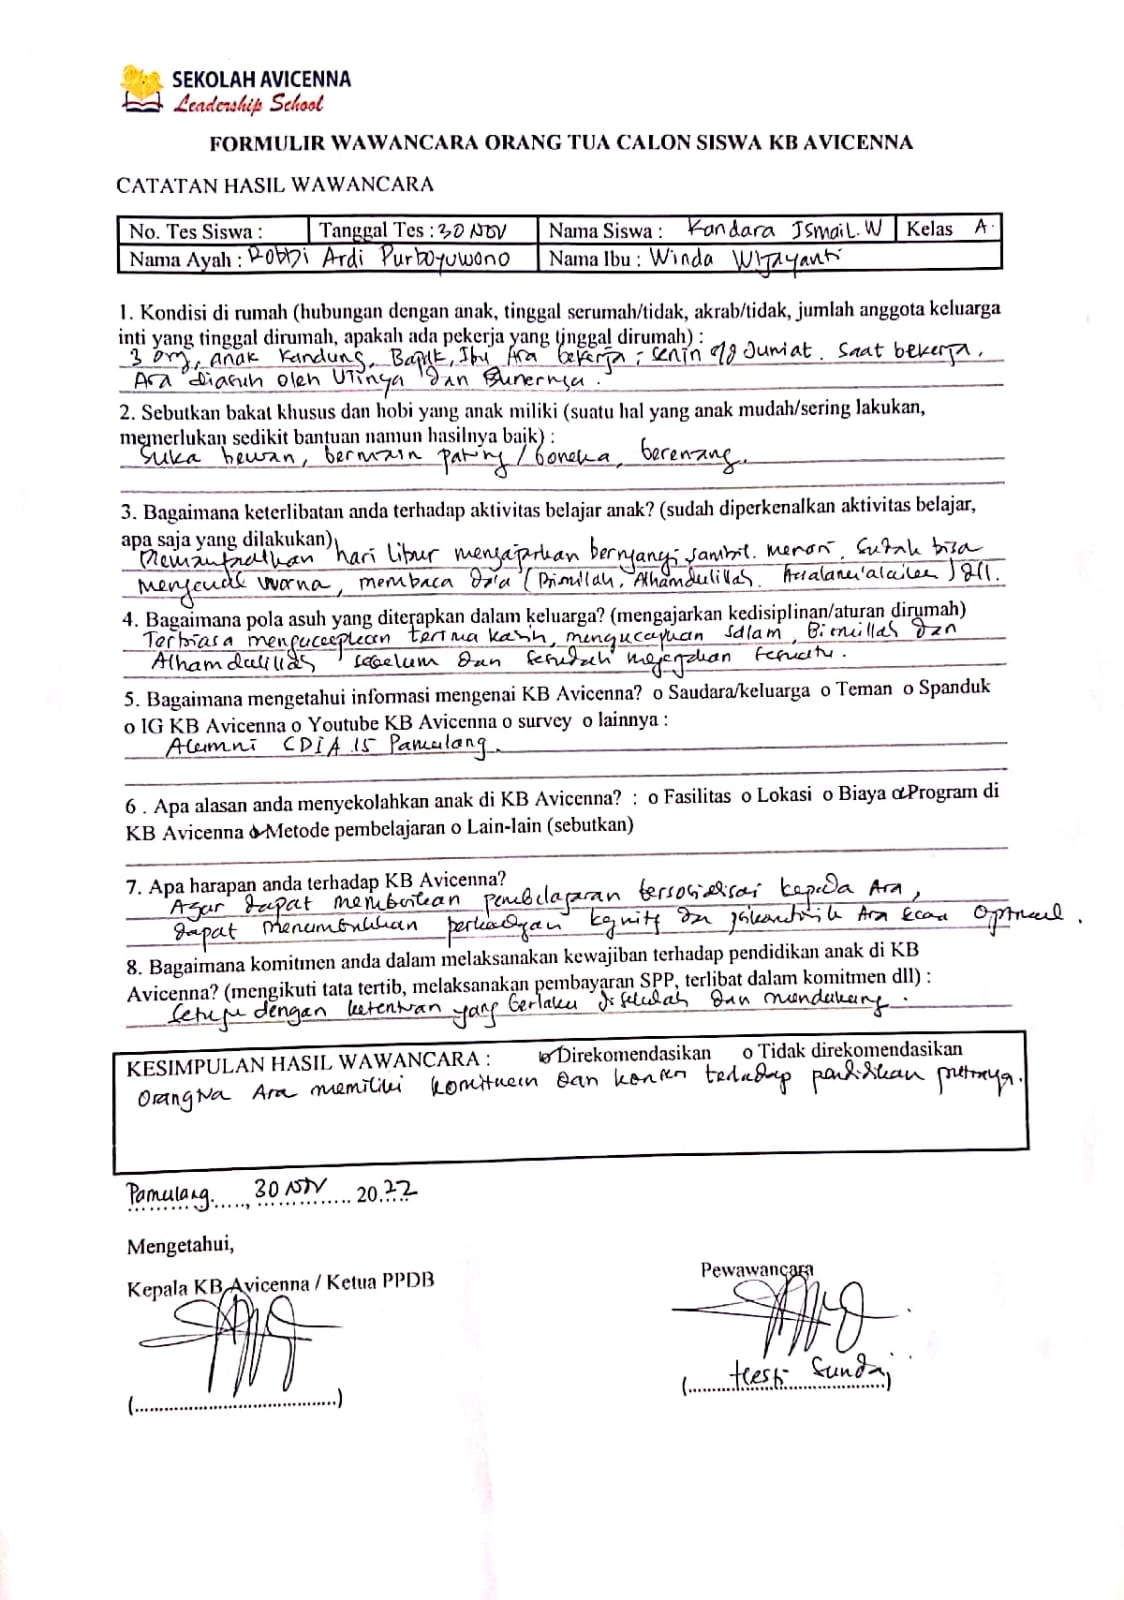 SEKOLAH AVICENNA
Leadership School
FORMULIR WAWANCARA ORANG TUA CALON SISWA KB AVICENNA
CATATAN HASIL WAWANCARA
No. Tes Siswa : Tanggal Tes : 30 NOV Nama Siswa : Kandara Ismail. W Kelas A.
Nama Ayah : Robbi Ardi Purboyuwono Nama Ibu : Winda Wijayanti
1. Kondisi di rumah (hubungan dengan anak, tinggal serumah/tidak, akrab/tidak, jumlah anggota keluarga
inti yang tinggal dirumah, apakah ada pekerja yang tinggal dirumah) :
3 org, anak kandung, Bapak, Ibu Ara bekerja : senin s/d Jumiat. Saat bekerja.
Ara diasuh oleh Utinya dan
2. Sebutkan bakat khusus dan hobi yang anak miliki (suatu hal yang anak mudah/sering lakukan,
memerlukan sedikit bantuan namun hasilnya baik) :
Suka hewan, bermain / boneka, berenang.
3. Bagaimana keterlibatan anda terhadap aktivitas belajar anak? (sudah diperkenalkan aktivitas belajar,
apa saja yang dilakukan)
Memanfaatkan hari libur mengajarkan bernyanyi sambil menari. Sudah bisa
warna, membaca do'a (Bismillah, Alhamdulillah. ) dll.
4. Bagaimana pola asuh yang diterapkan dalam keluarga? (mengajarkan kedisiplinan/aturan dirumah)
Terbiasa mengucapkan terima kasih, mengucapkan salam, Bismillah dan
Alhamdulillah sebelum dan sesudah mengerjakan sesuatu.
5. Bagaimana mengetahui informasi mengenai KB Avicenna? o Saudara/keluarga o Teman o Spanduk
o IG KB Avicenna o Youtube KB Avicenna o survey o lainnya :
Alumni CDIA 15 Pamulang.
6 . Apa alasan anda menyekolahkan anak di KB Avicenna? : o Fasilitas o Lokasi o Biaya o Program di
KB Avicenna o Metode pembelajaran o Lain-lain (sebutkan)
7. Apa harapan anda terhadap KB Avicenna?
Agar dapat memberikan pembelajaran tersosialisasi kepada Ara,
dapat menumbuhkan perkembangan kognitif dan Ara secara optimal.
8. Bagaimana komitmen anda dalam melaksanakan kewajiban terhadap pendidikan anak di KB
Avicenna? (mengikuti tata tertib, melaksanakan pembayaran SPP, terlibat dalam komitmen dll) :
Setuju dengan ketentuan yang berlaku di sekolah dan mendukung.
KESIMPULAN HASIL WAWANCARA : o Direkomendasikan o Tidak direkomendasikan
Ara memiliki komitmen dan konsen terhadap pendidikan putranya.
Pamulang....., 30 NOV .............. 2022
Mengetahui,
Kepala KB Avicenna / Ketua PPDB
Pewawancara
(........ Hesti Sundari ........)
(........................................)